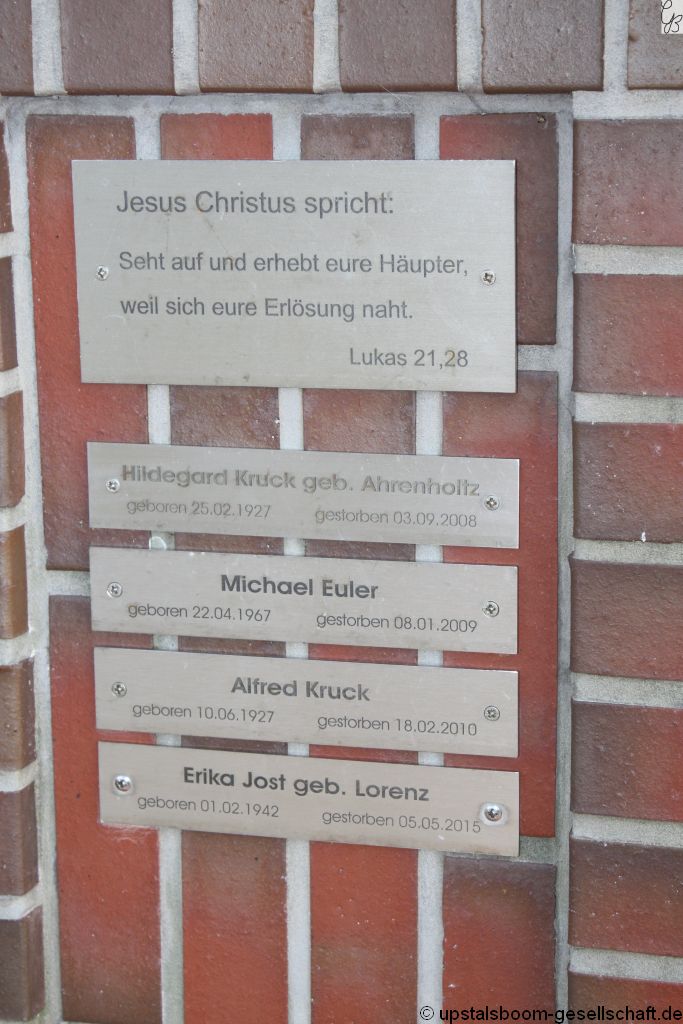 Jesus Christus spricht:
Seht auf und erhebt eure Häupter,
weil sich eure Erlösung naht.
Lukas 21,28
Hildegard Kruck geb. Ahrenholtz
geboren 25.02.1927 gestorben 03.09.2008
Michael Euler
geboren 22.04.1967 gestorben 08.01.2009
Alfred Kruck
geboren 10.06.1927 gestorben 18.02.2010
Erika Jost geb. Lorenz
geboren 01.02.1942 gestorben 05.05.2015
© upstalsboom-gesellschaft.de